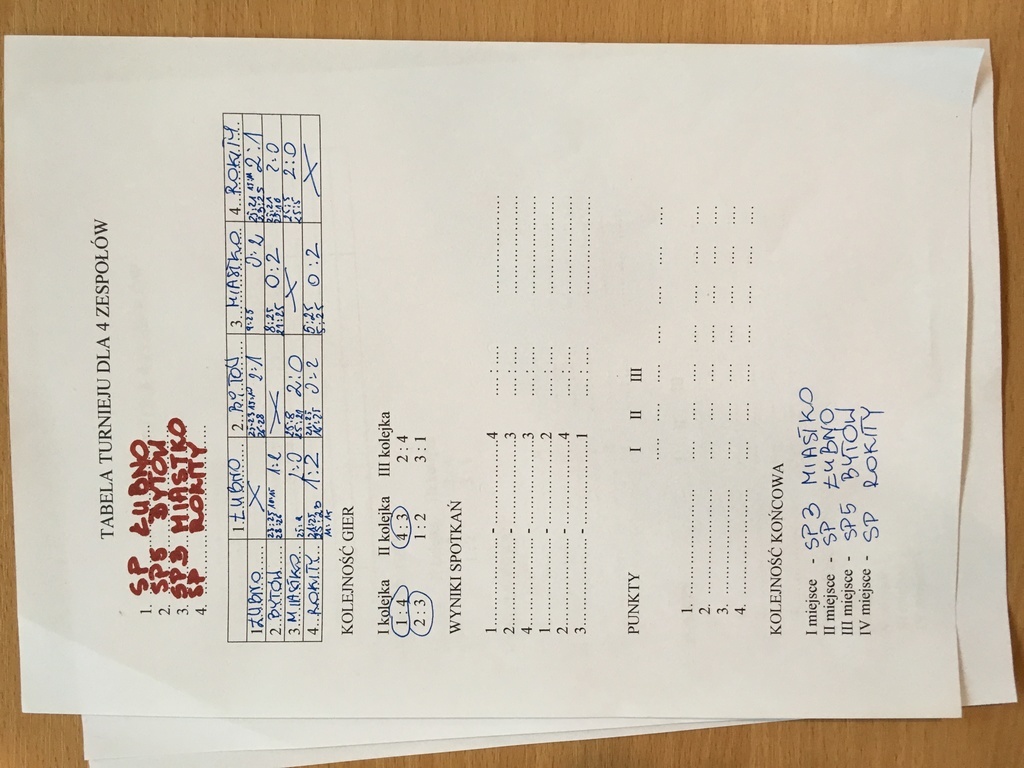 TABELA TURNIEJU DLA 4 ZESPOŁÓW
1. SP ŁUBNO
2. SP5 BYTÓW
3. SP3 MIASTKO
4. SP ROKITY
1. ŁUBNO 2. BYTÓW 3. MIASTKO 4. ROKITY
1 ŁUBNO X 2:1 0:2 2:1
2. BYTÓW 1:2 X 0:2 2:0
3. MIASTKO 2:0 X 2:0
4. ROKITY 1:2 0:2 0:2 X
KOLEJNOŚĆ GIER
I kolejka II kolejka III kolejka
1 - 4 4 - 3 2 : 4
2 : 3 1 : 2 3 : 1
WYNIKI SPOTKAŃ
1..............-...............4 .... : .... ....................
2..............-...............3 .... : .... ....................
4..............-...............3 .... : .... ....................
1..............-...............2 .... : .... ....................
2..............-...............4 .... : .... ....................
3..............-...............1 .... : .... ....................
PUNKTY I II III
1. ........................ .... .... .... .... .... ....
2. ........................ .... .... .... .... .... ....
3. ........................ .... .... .... .... .... ....
4. ........................ .... .... .... .... .... ....
KOLEJNOŚĆ KOŃCOWA
I miejsce - SP3 MIASTKO
II miejsce - SP ŁUBNO
III miejsce - SP5 BYTÓW
IV miejsce - SP ROKITY